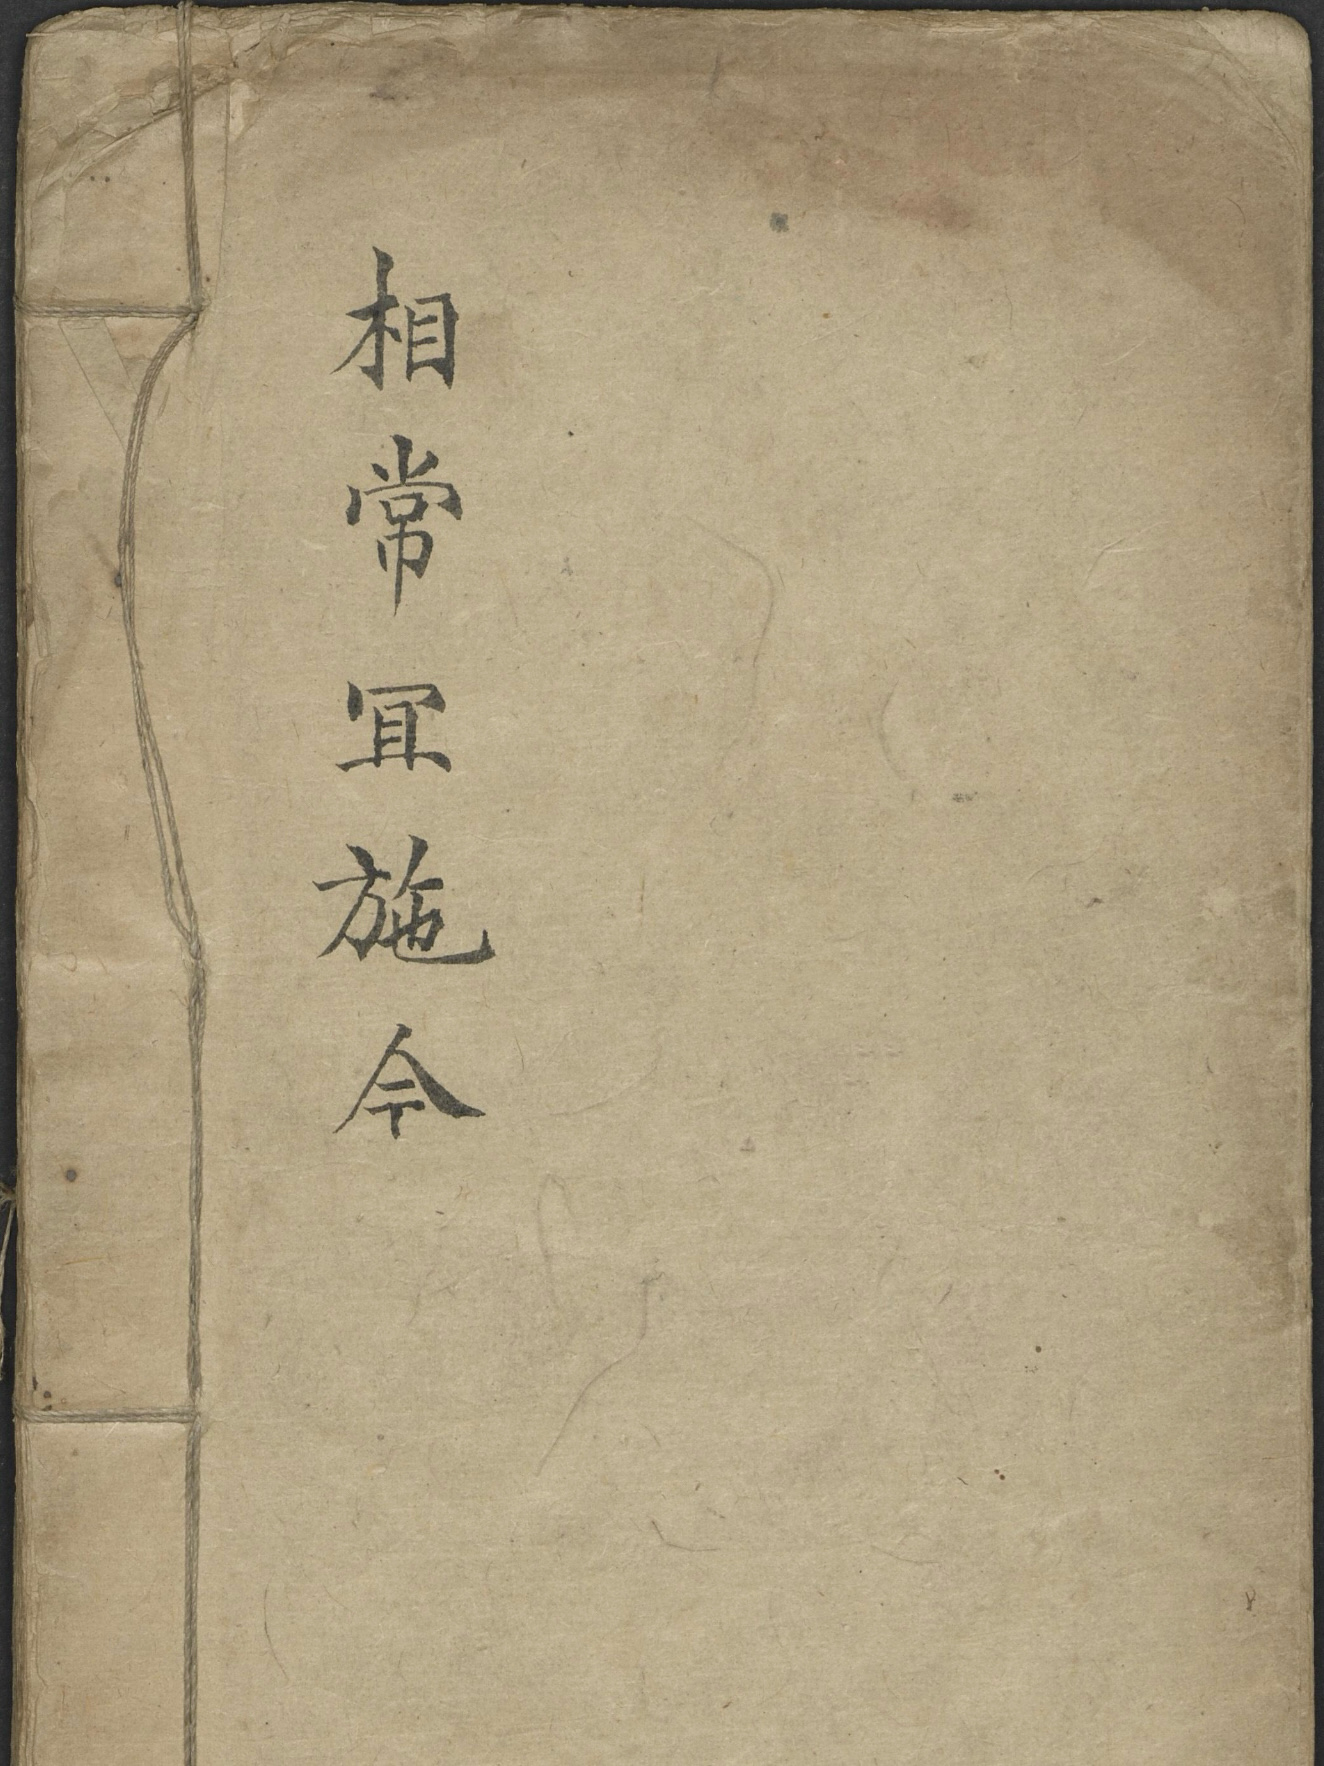 相常冝施令